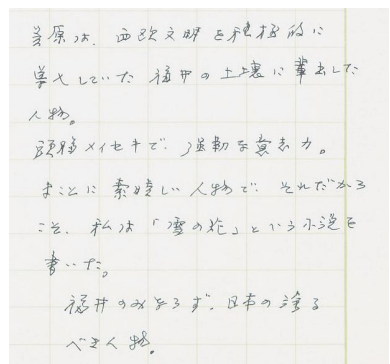 笠原は、西欧文明を積極的に
導入していた福井の土壌に輩出した
人物。
頭脳メイセキで、強靭な意志力。
まことに素晴しい人物で、それだから
こそ、私は「雪の花」という小説を
書いた。
福井のみならず、日本の誇る
べき人物。